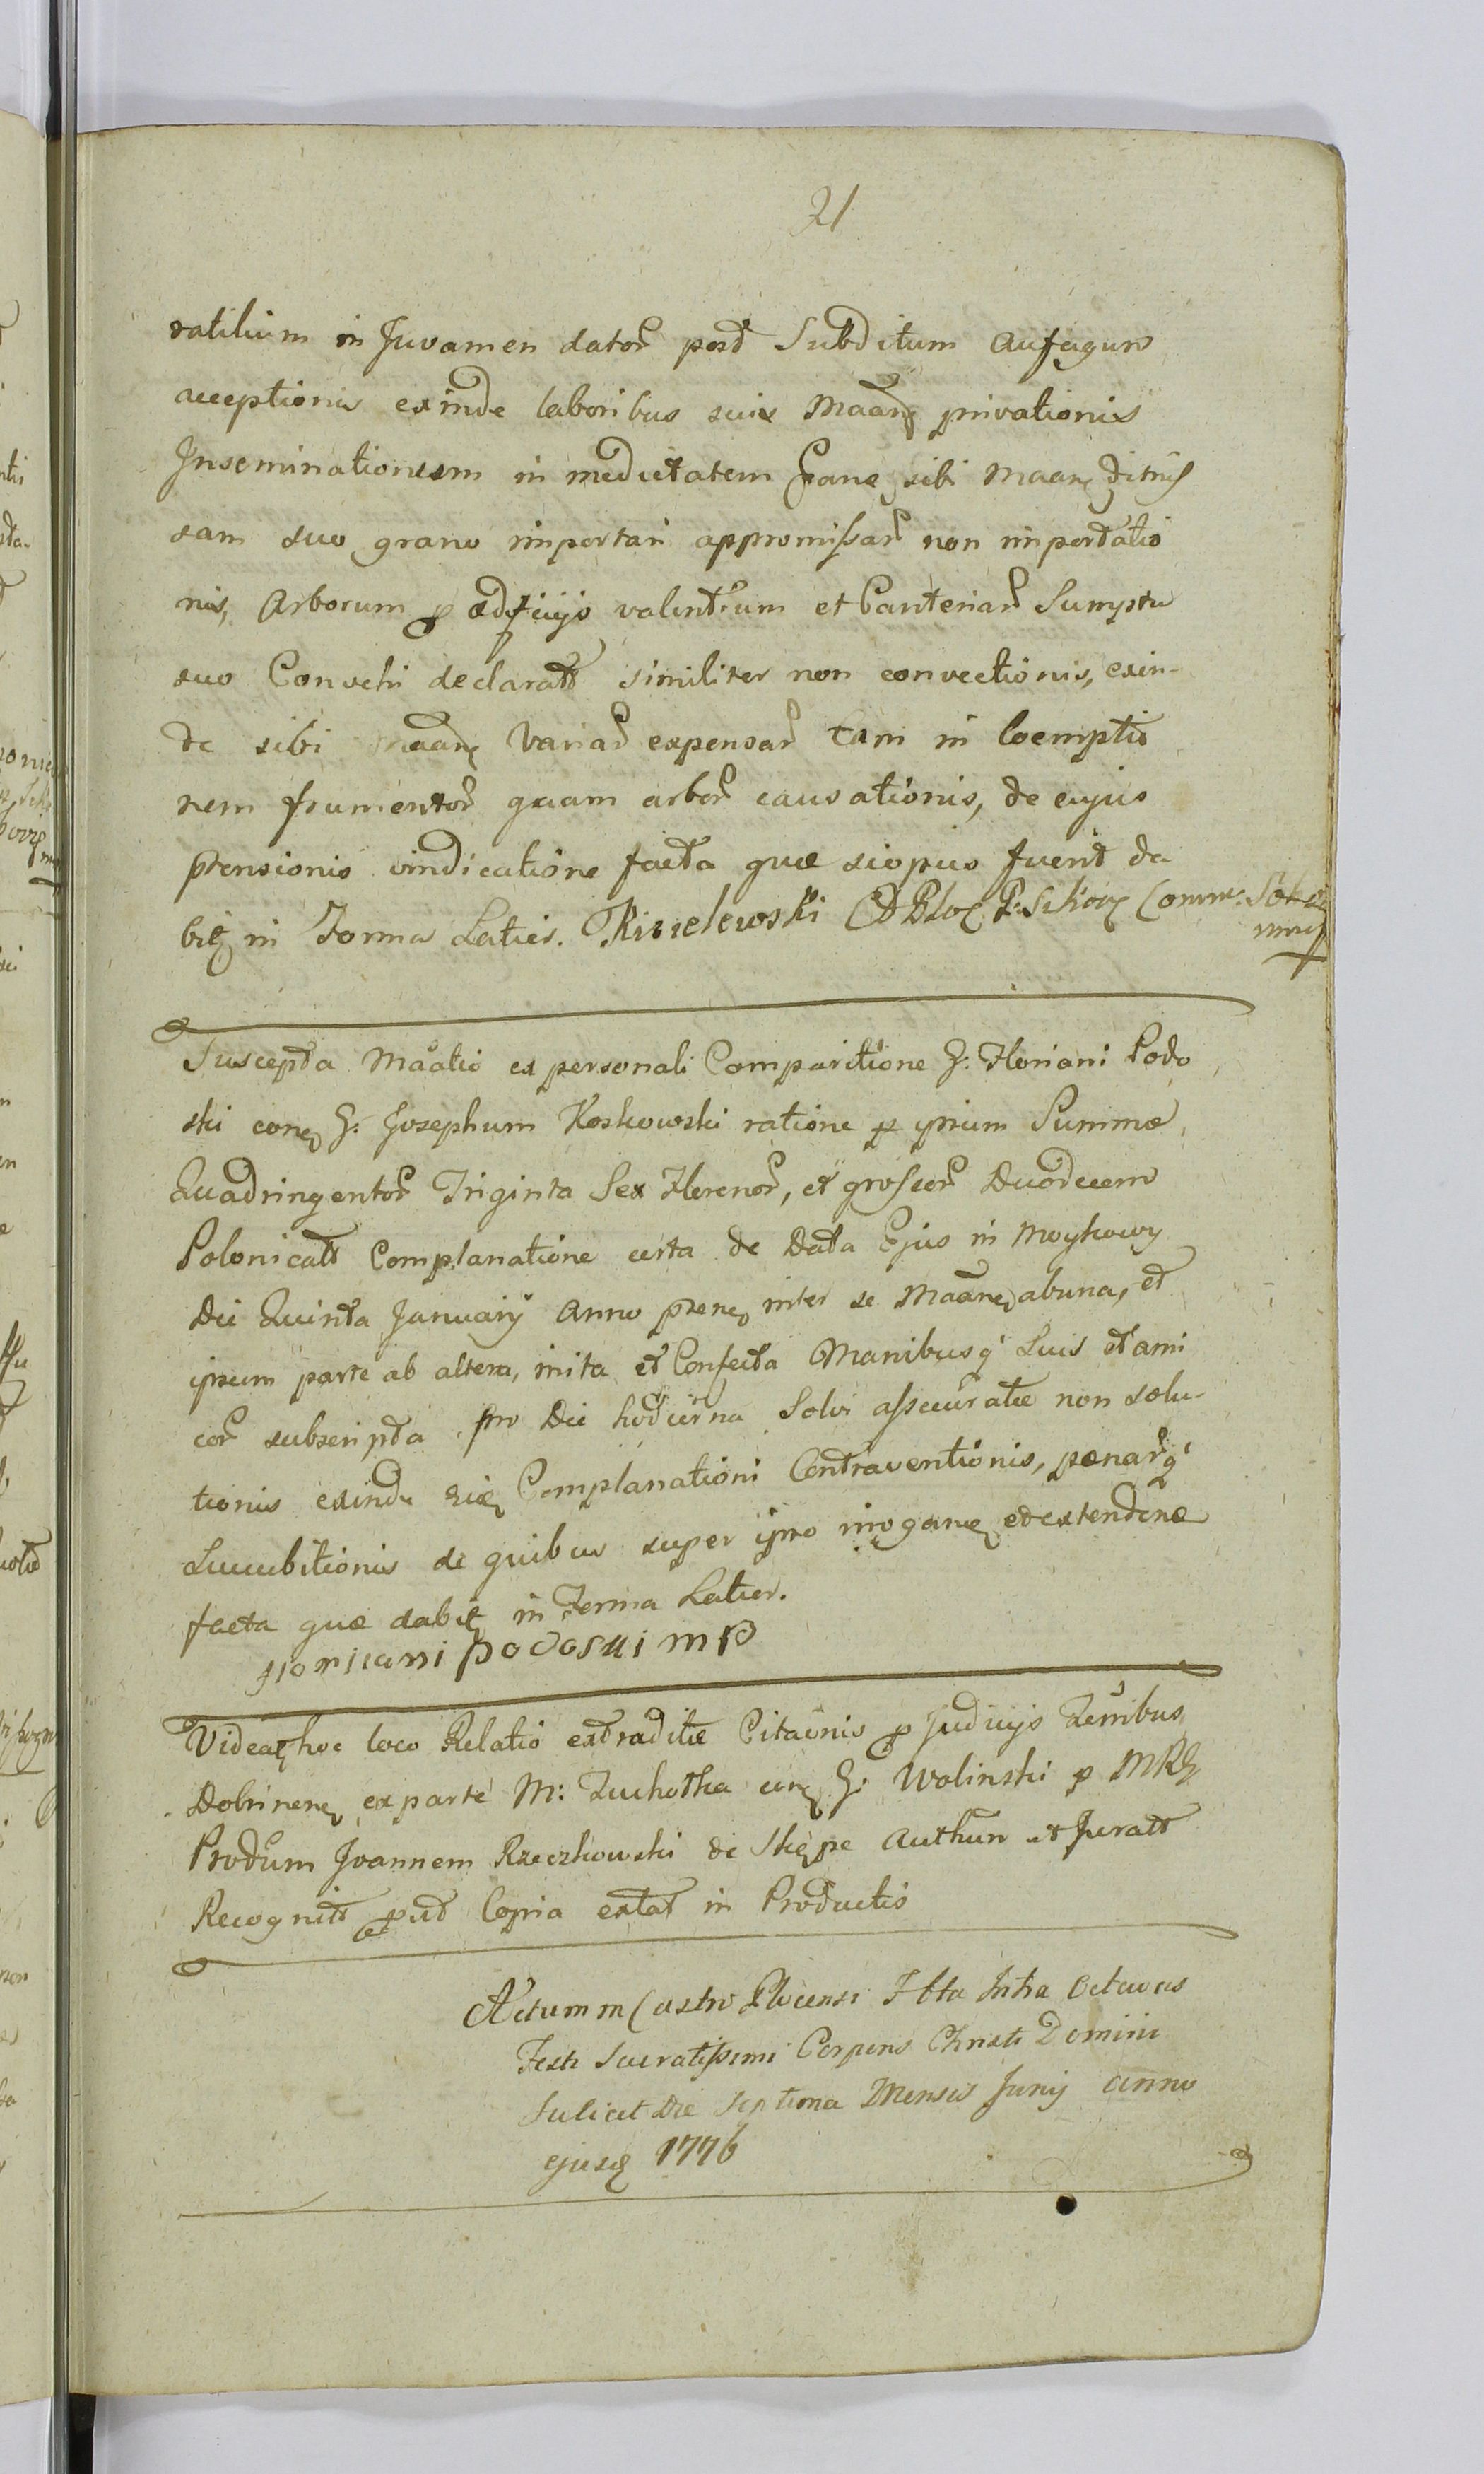 21
ratilium in Juvamen dator post Subditum Aufugum
acceptionis exinde laboribus suis Maan privationis
Inseminationum in medietatem sibi Maan
sam suo grano importari appromissar non importatio
nis, Arborum p ædificijs valentium et Canteriar Sumptu
suo Convehi declarat similiter non convectionis, exin-
de sibi Maan Variar expensar tam in Coemptio
nem frumentor quam arbor causationis, de cujus
ptensionis vindicatione facta quæ si opus fuerit da
bit in Forma Latior. Kisielewski
Suscepta Maatio ex personali Comparitione G: Floriani Podo
ski con G: Josephum Koskowski ratione p ipsum Summæ
Quadringentor Triginta Sex Florenor, et grossor Duodecem
Polonicalt Complanatione certa de Data Ejus in Moykowy
Die Quinta January Anno pren inter se Maan ab una, et
ipsum parte ab altera, inita et Confecta Manibusq Suis et ami
cor subscripta pro Die hodierna Solvi assecuratæ non solu-
tionis exinde Complanationi Contraventionis, pænarq
Succubitionis de quibus super ipso irrogan et extendend
facta quæ dabit in Forma Latior.
floriiani podoski mp
Videat hoc loco Relatio extraditæ Citaonis p Judicijs Trribus
Dobrinen ex parte M: Zuchotka con G: Wolinski p MRG
Produm Joannem Rzeczkowski de Skępe Authen et Jurat
Recognit put Copia extat in Productis
Actum in Castro Plocensi Fta Intra Octavas
Festi Sacratissimi Corporis Christi Domini
Scilicet Die Septima Mensis Junij anno
ejusd 1776